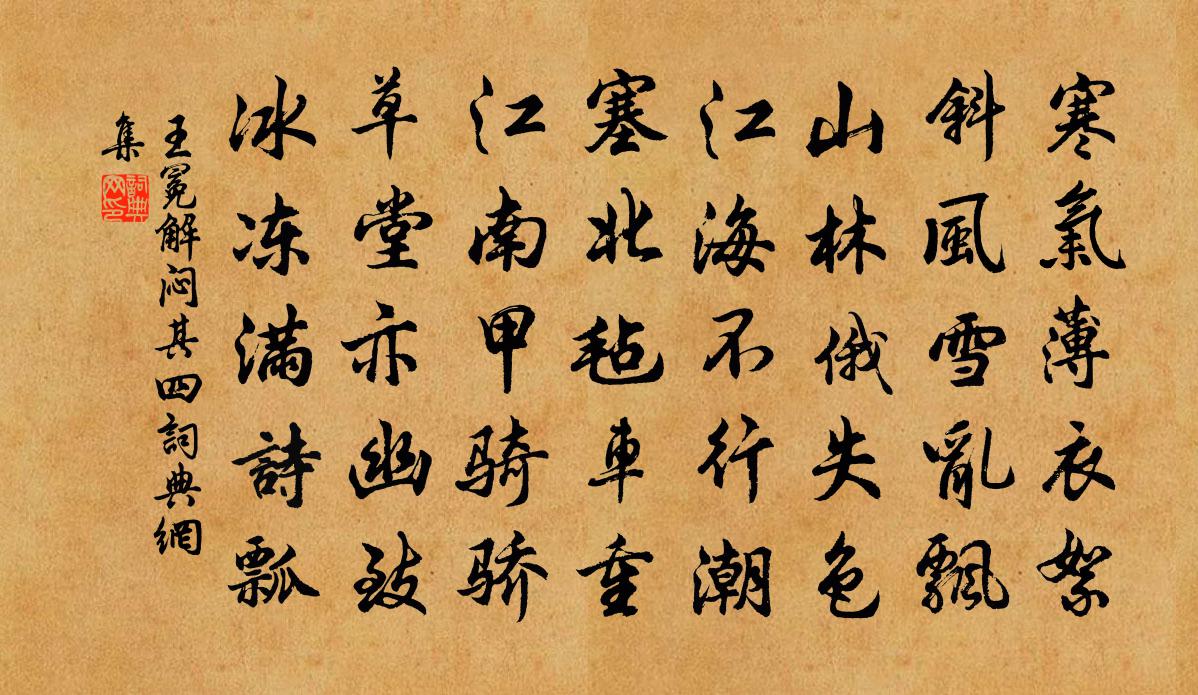 寒氣薄衣絮
斜風雪亂飄
山林俄失色
江海不行潮
塞北毡車重
江南甲骑骄
草堂亦幽致
冰冻满詩瓢
王冕解闷其四詞典網
集
詞典
网印